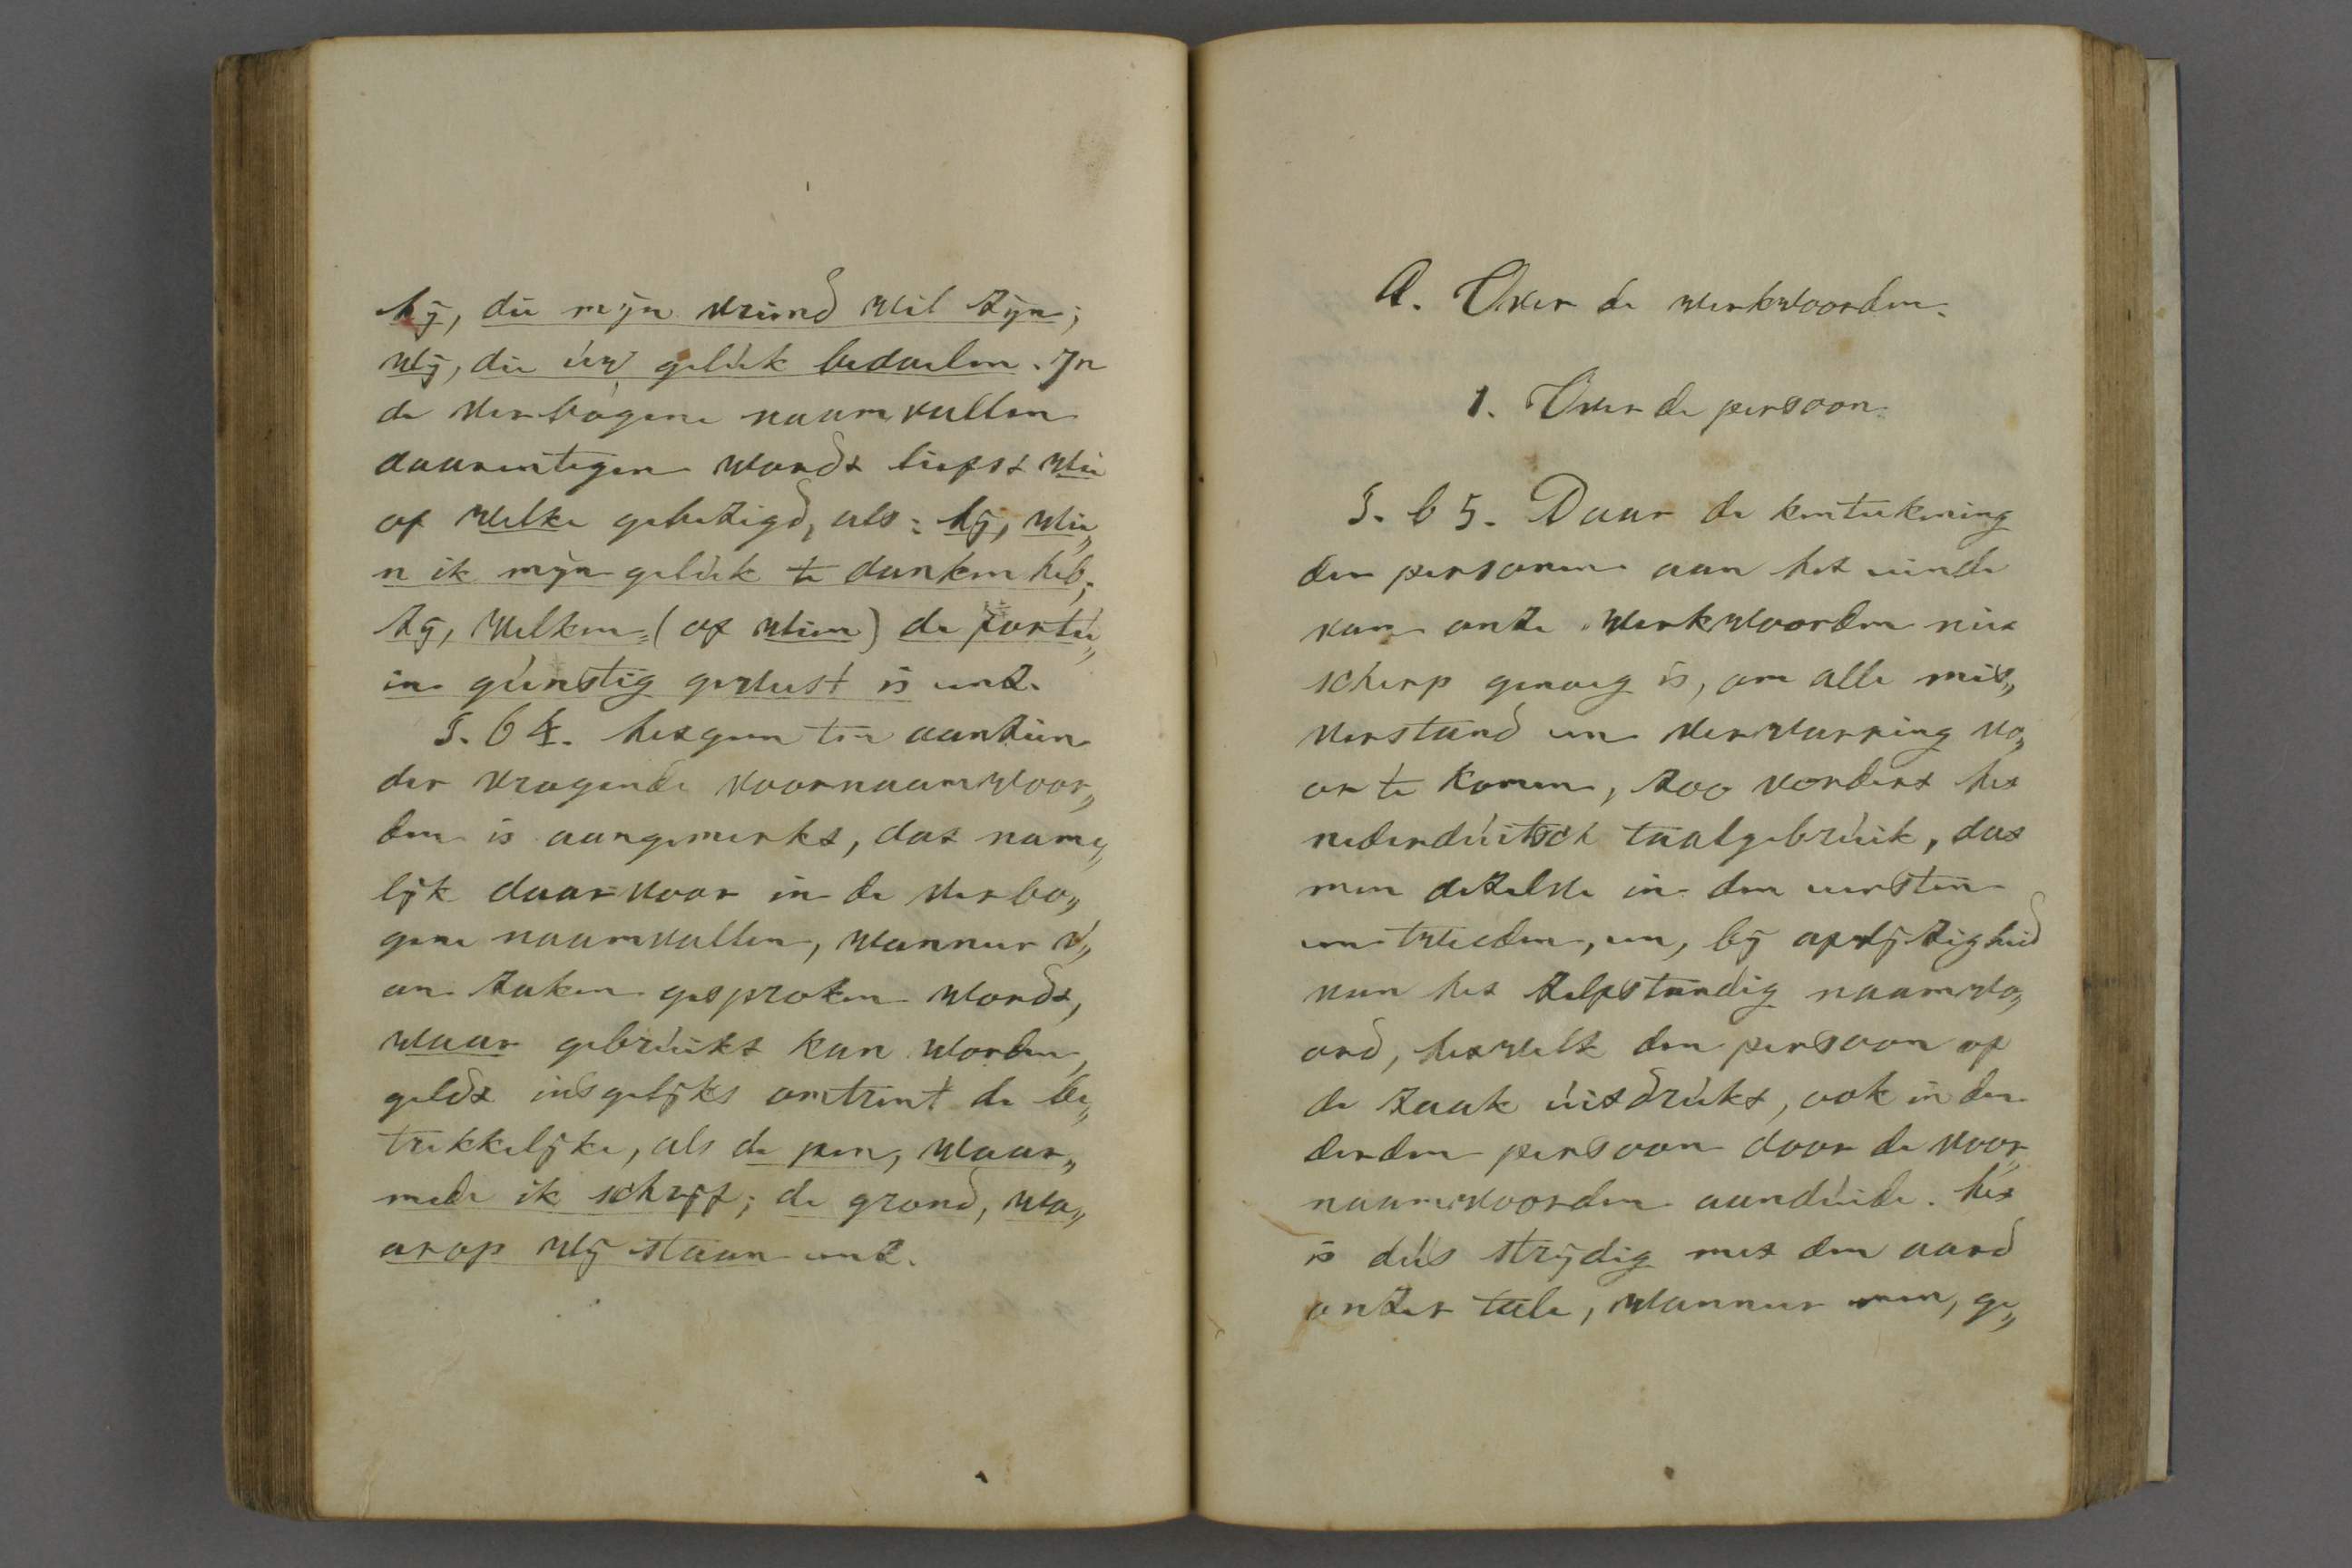 hij, die mijn vriend wil zijn;
wij, die úw gelúk bedoelen. In
de verbogene naamvallen
daarentegen wordt liefst wie
of welke gebezigd, als: hij, wie„
n ik mijn gelúk te danken heb;
zij, welken (of wien) de fortu„
in gúnstig geweest is enz.
§. 64. hetgeen ten aanzien
der vragende voornaamwoor„
den is aangemerkt, dat name„
lijk daarvoor in de verbo„
gene naamvallen, wanneer v„
an zaken gesproken wordt,
waar gebrúikt kan worden,
geldt insgelijks omtrent de be„
trekkelijke, als de pen, waar„
mede ik schrijf; de grond, wa„
arop wij staan enz.
A. Over de werkwoorden.
1. Over de persoon.
§. 65. Daar de kenteekening
der personen aan het einde
van onze werkwoorden niet
scherp genoeg is, om alle mis„
verstand en verwarring vo„
or te komen, zoo vordert het
nederdúitsch taalgebrúik, dat
men dezelve in den eersten
en tweeden, en, bij afwijzigheid
van het zelfstandig naamwo„
ord, hetwelk den persoon of
de zaak úitdrúkt, ook in den
derden persoon door de voor„
naamwoorden aandúide. het
is dús strijdig met den aard
onzer tale, wanneer men, ge„